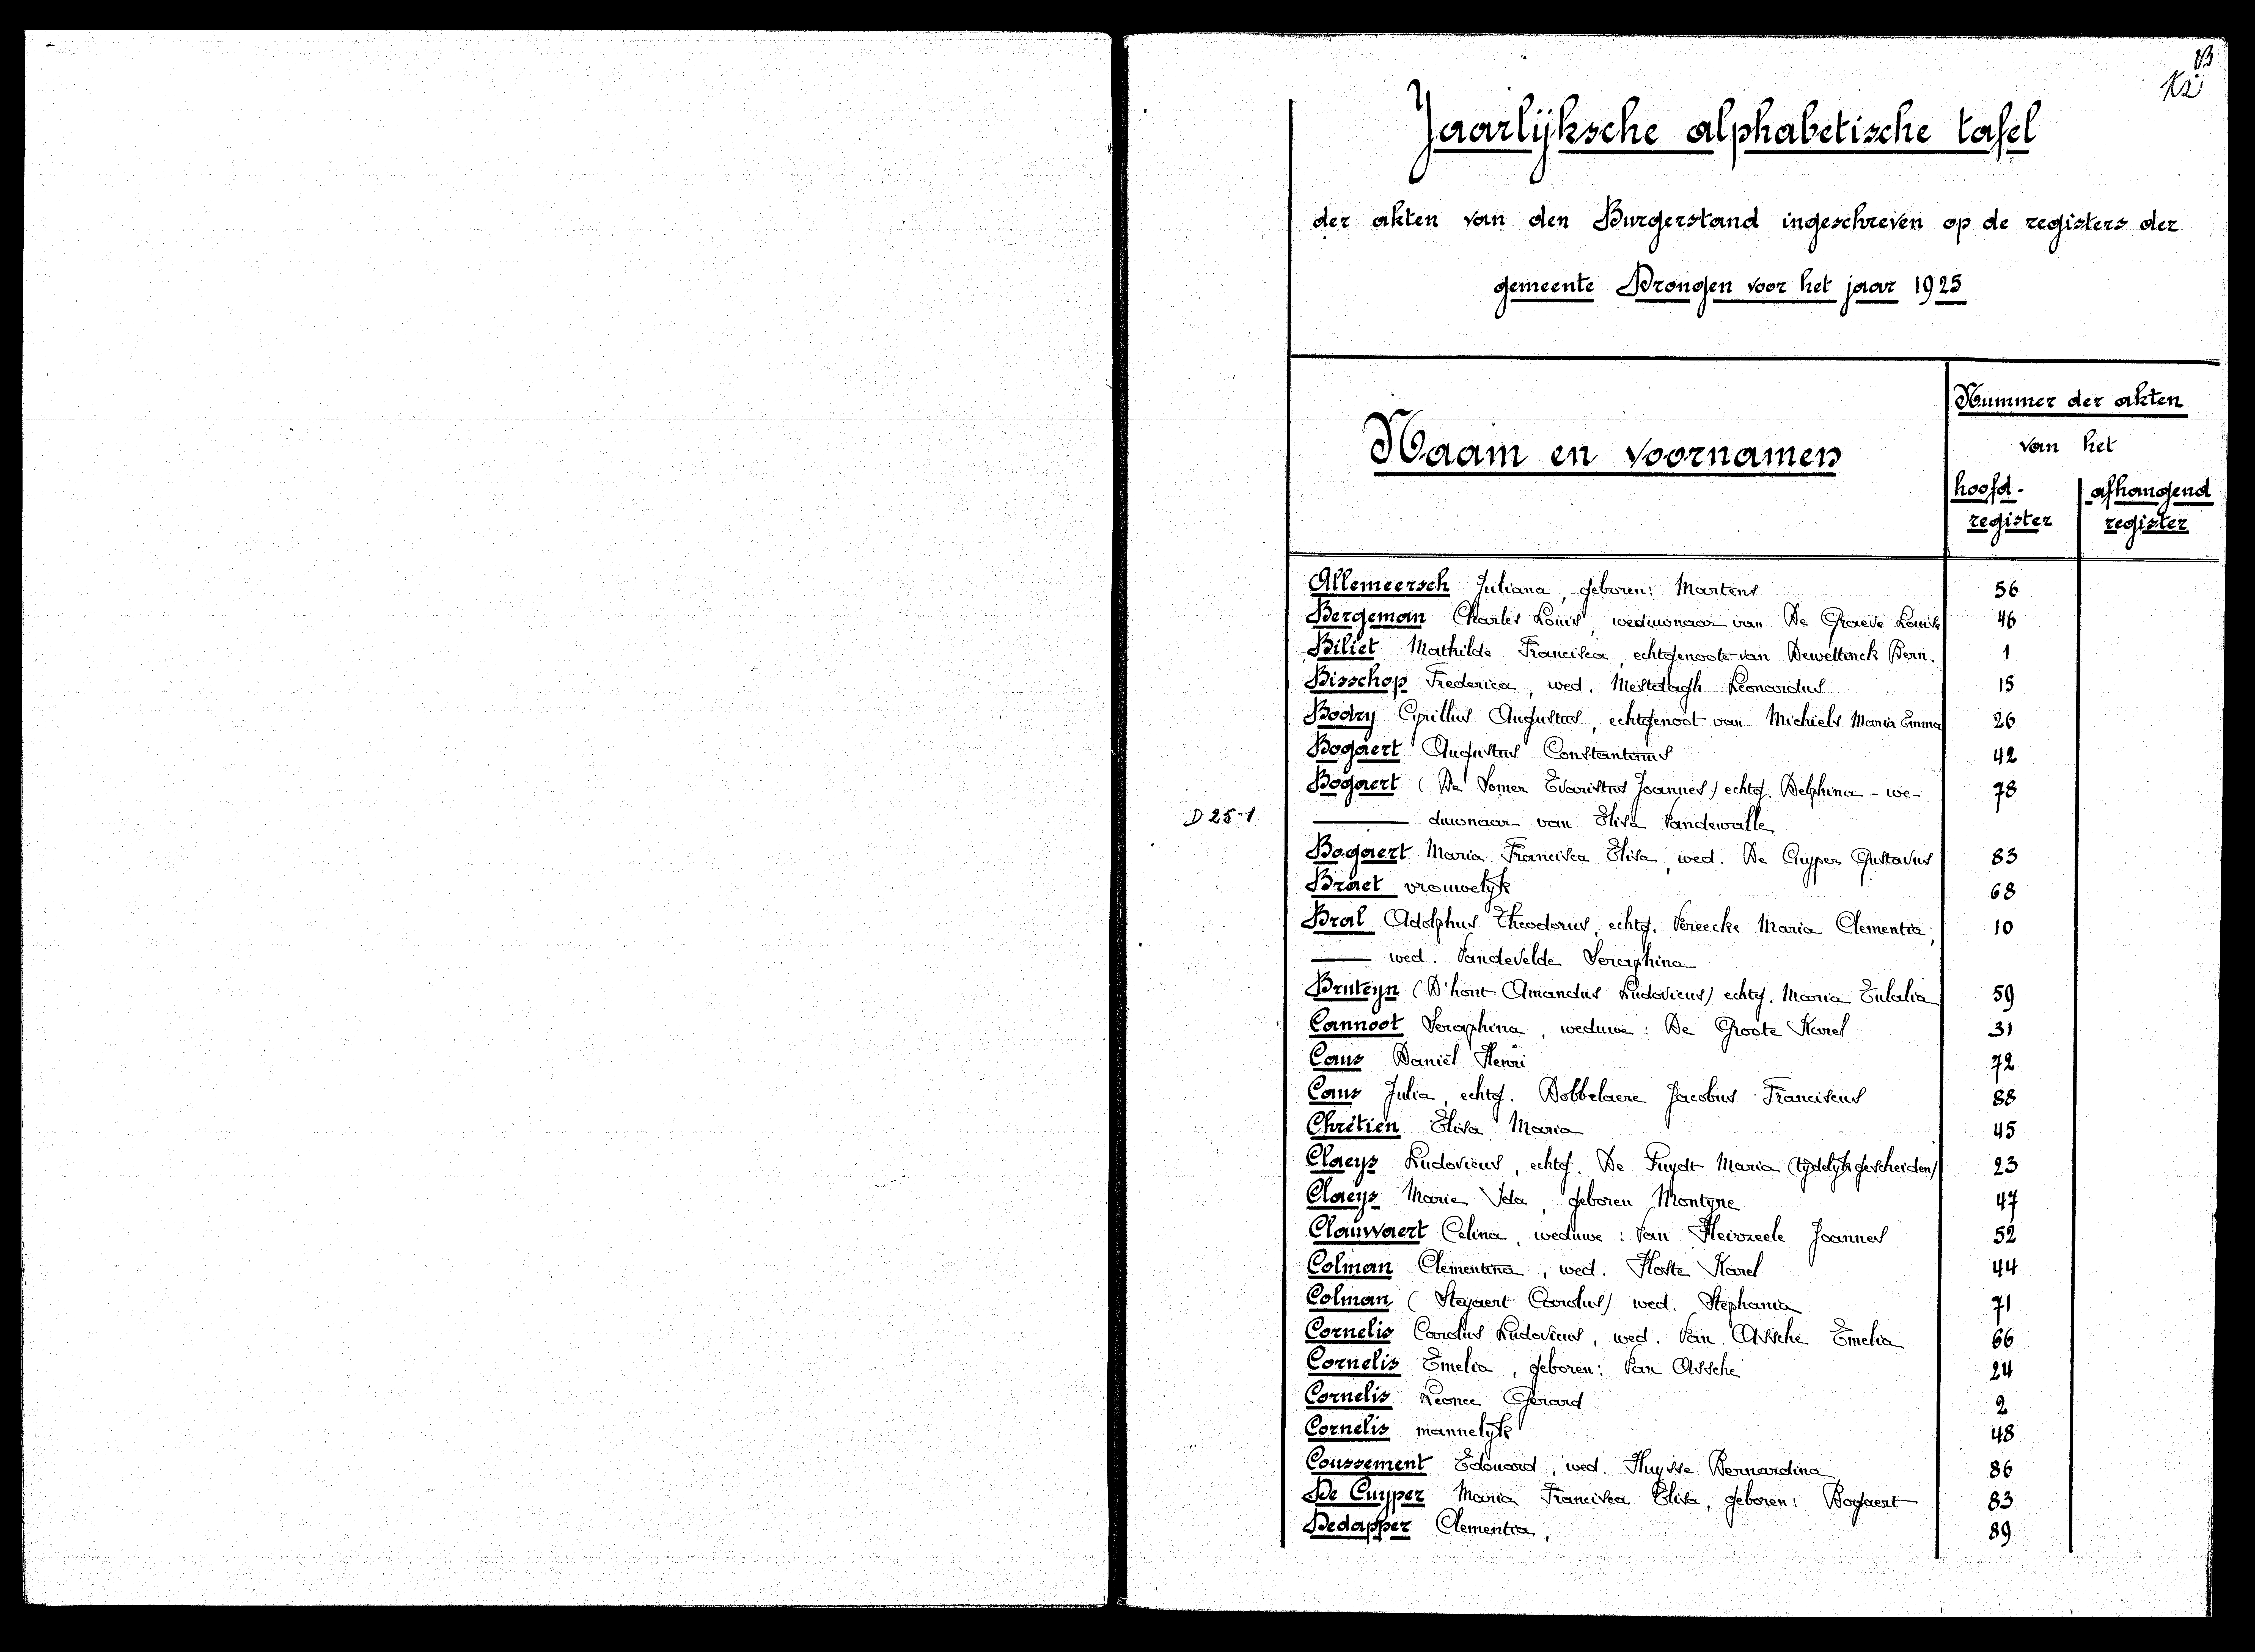 13
12
Jaarlijksche alphabetische tafel
der akten van den Burgerstand ingeschreven op de registers der
gemeente Drongen voor het jaar 1925
Naam en voornamen
Nummer der akten
van het
hoofd-register
afhangend register
Allemeersch Juliana, geboren: Martens 56
Bergeman Charles Louis, weduwnaar van De Graeve Louise 46
Biliet Mathilde Francisca, echtgenoote van Dewettinck Bern. 1
Bisschop Frederica, wed. Mestdagh Leonardus 15
Bodry Cyrillus Augustus, echtgenoot van Michiels Maria Emma 26
Bogaert Augustus Constantinus 42
Bogaert (De Somer Evaristus Joannes) echtg. Delphina - we- 78
D 25-1
duwnaar van Elisa Vandewalle
Bogaert Maria Francisca Elisa, wed. De Cuyper Gustavus 83
Braet vrouwelijk 68
Bral Adolphus Theodorus, echtg. Vereecke Maria Clementia, 10
wed. Vandevelde Seraphina
Bruteyn (D'hont Amandus Ludovicus) echtg. Maria Eulalia 59
Cannoot Seraphina, weduwe: De Groote Karel 31
Caus Daniël Henri 72
Caus Julia, echtg. Dobbelaere Jacobus Franciscus 88
Chrétien Elisa Maria 45
Claeys Ludovicus, echtg. De Fuydt Maria (tijdelijk gescheiden) 23
Claeys Marie Ida, geboren Montyne 47
Clauwaert Celina, weduwe: Van Heirzeele Joannes 52
Colman Clementina, wed. Hoste Karel 44
Colman (Steyaert Carolus) wed. Stephania 71
Cornelis Carolus Ludovicus, wed. Van Assche Emelia 66
Cornelis Emelia, geboren: Van Assche 24
Cornelis Leonce Gerard 2
Cornelis mannelijk 48
Coussement Edouard, wed. Huysse Bernardina 86
De Cuyper Maria Francisca Elisa, geboren: Bogaert 83
Dedapper Clementia, 89